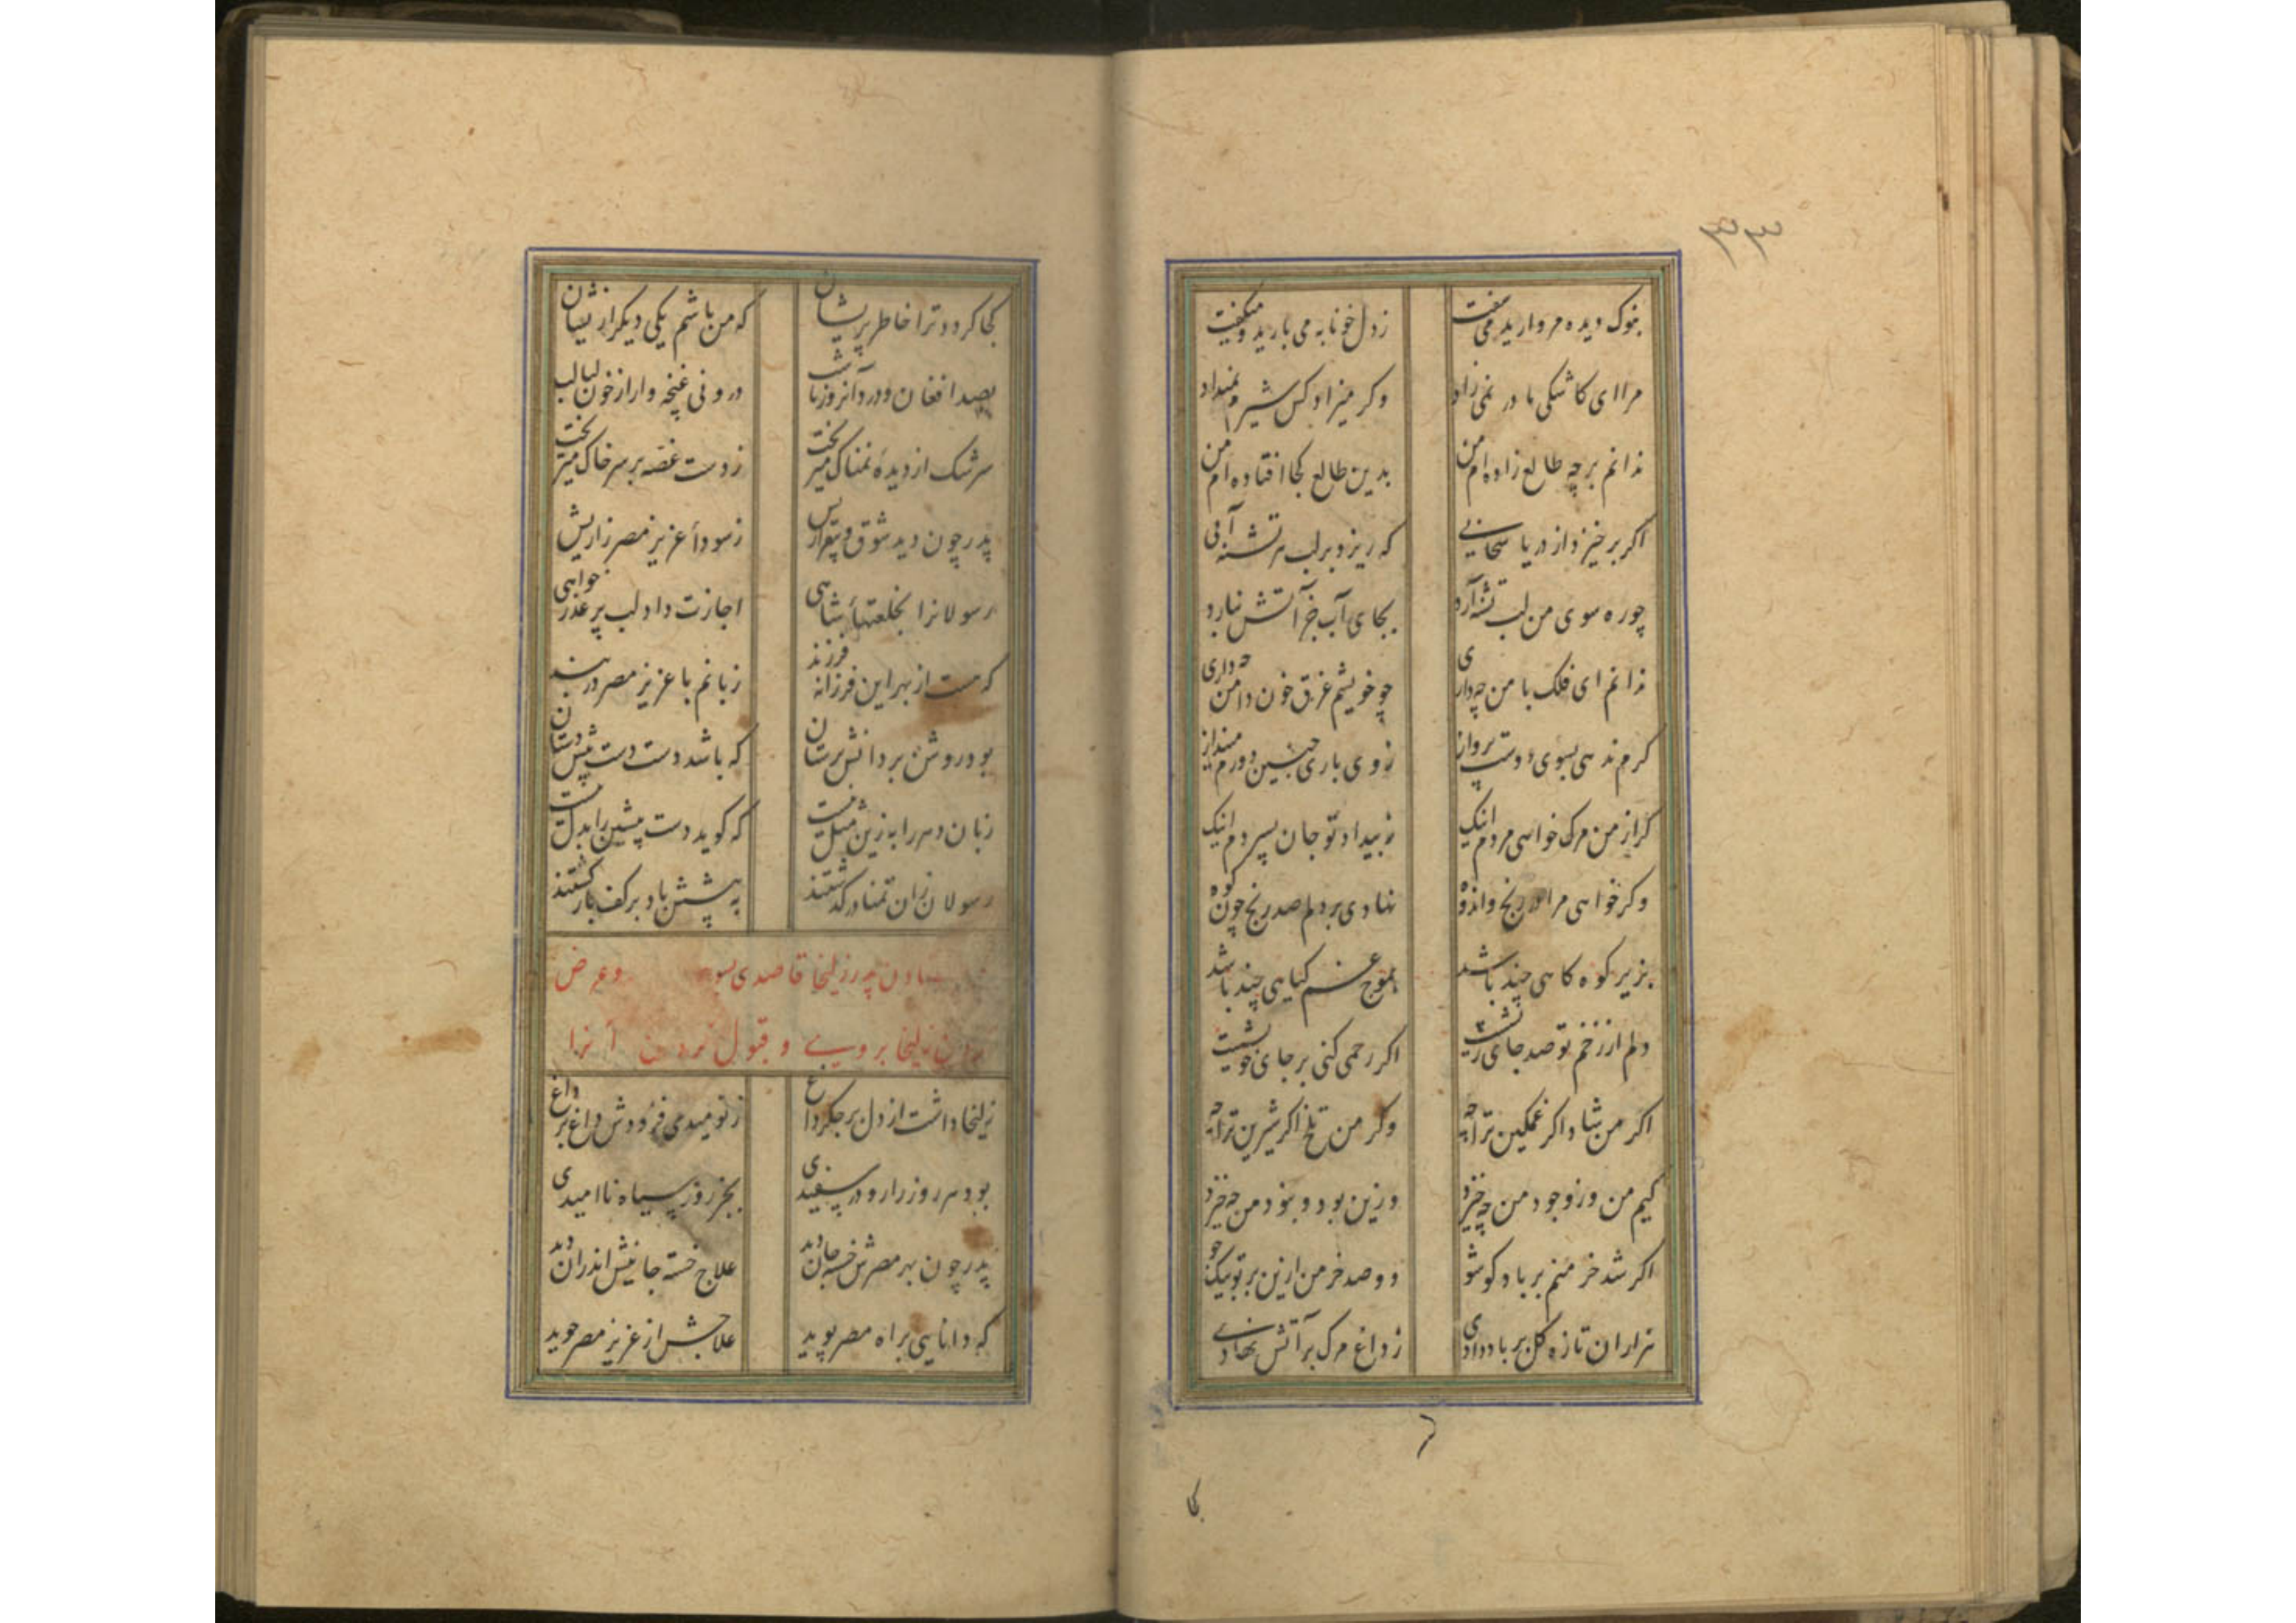 ۳۳
بنوک دیده مروارید می سفت زدل خونابه می بارید و میگفت
مرا ای کاشکی مادر نمی زاد وکر میزاد کس شیرم نمیداد
ندانم بر چه طالع زاده ام من بدین طالع کجا افتاده ام من
اکر برخیزد از دریا سحابی که ریزد بر لب هر تشنه آبی
چو ره سوی من لب تشنه آرد بجای آب جز آتش نبارد
ندانم ای فلک با من چه داری چو خویشم غرق خون دامن چه داری
کرم ندهی بسوی دوست پرواز زوی باری چنین دورم مینداز
کر از من مرک خواهی مردم اینک ز بیداد تو جان سپردم اینک
وکر خواهی مرا در رنج و اندوه نهادی بر دلم صد رنج چون کوه
بزیر کوه کاهی چند باشد بموج غم کیاهی چند باشد
دلم از زخم تو صد جای ریشت اکر رحمی کنی بر جای خویشت
اکر من شاد اکر غمکین ترا چه وکر من تلخ اکر شیرین ترا چه
کیم من وز وجود من چه خیزد وزین بود و نبود من چه خیزد
اکر شد خرمنم بر باد کو شو دو صد خرمن ازین بر تو بیک جو
هزاران تازه کل بر باد دادی ز داغ مرک بر آتش نهادی
کجا
کجا کردد ترا خاطر پریشان که من باشم یکی دیکر ازیشان
بصد افغان و درد آنروز تا شب درونی غنچه وار از خون لبالب
سرشک از دیدهٔ نمناک میریخت زدست غصه بر سر خاک میریخت
پدر چون دید شوق و بیقراریش ز سوداء عزیز مصر زاریش
رسولانرا بخلعتهاء شاهی اجازت داد لب پر عذرخواهی
که هست از بهر این فرزانه فرزند زبانم با عزیز مصر در بند
بود روشن بر دانش پرستان که باشد دست دست پیش دستان
زبان دهر را به زین مثل نیست که کوید دست پیشین را بدل نیست
رسولان زان تمنا در کذشتند ز پیشش باد بر کف بازکشتند
پدر زلیخا قاصدی بسوی وعرض
زلیخا بر وی و قبول کردن آنرا
زلیخا داشت از دل بر جکر داغ ز نومیدی فزودش داغ بر داغ
بود هر روز را رو در سپیدی بجز روز سیاه ناامیدی
پدر چون بهر مصرش خسته جان دید علاج خسته جانیش اندران دید
که دانایی براه مصر پوید علاجش از عزیز مصر جوید